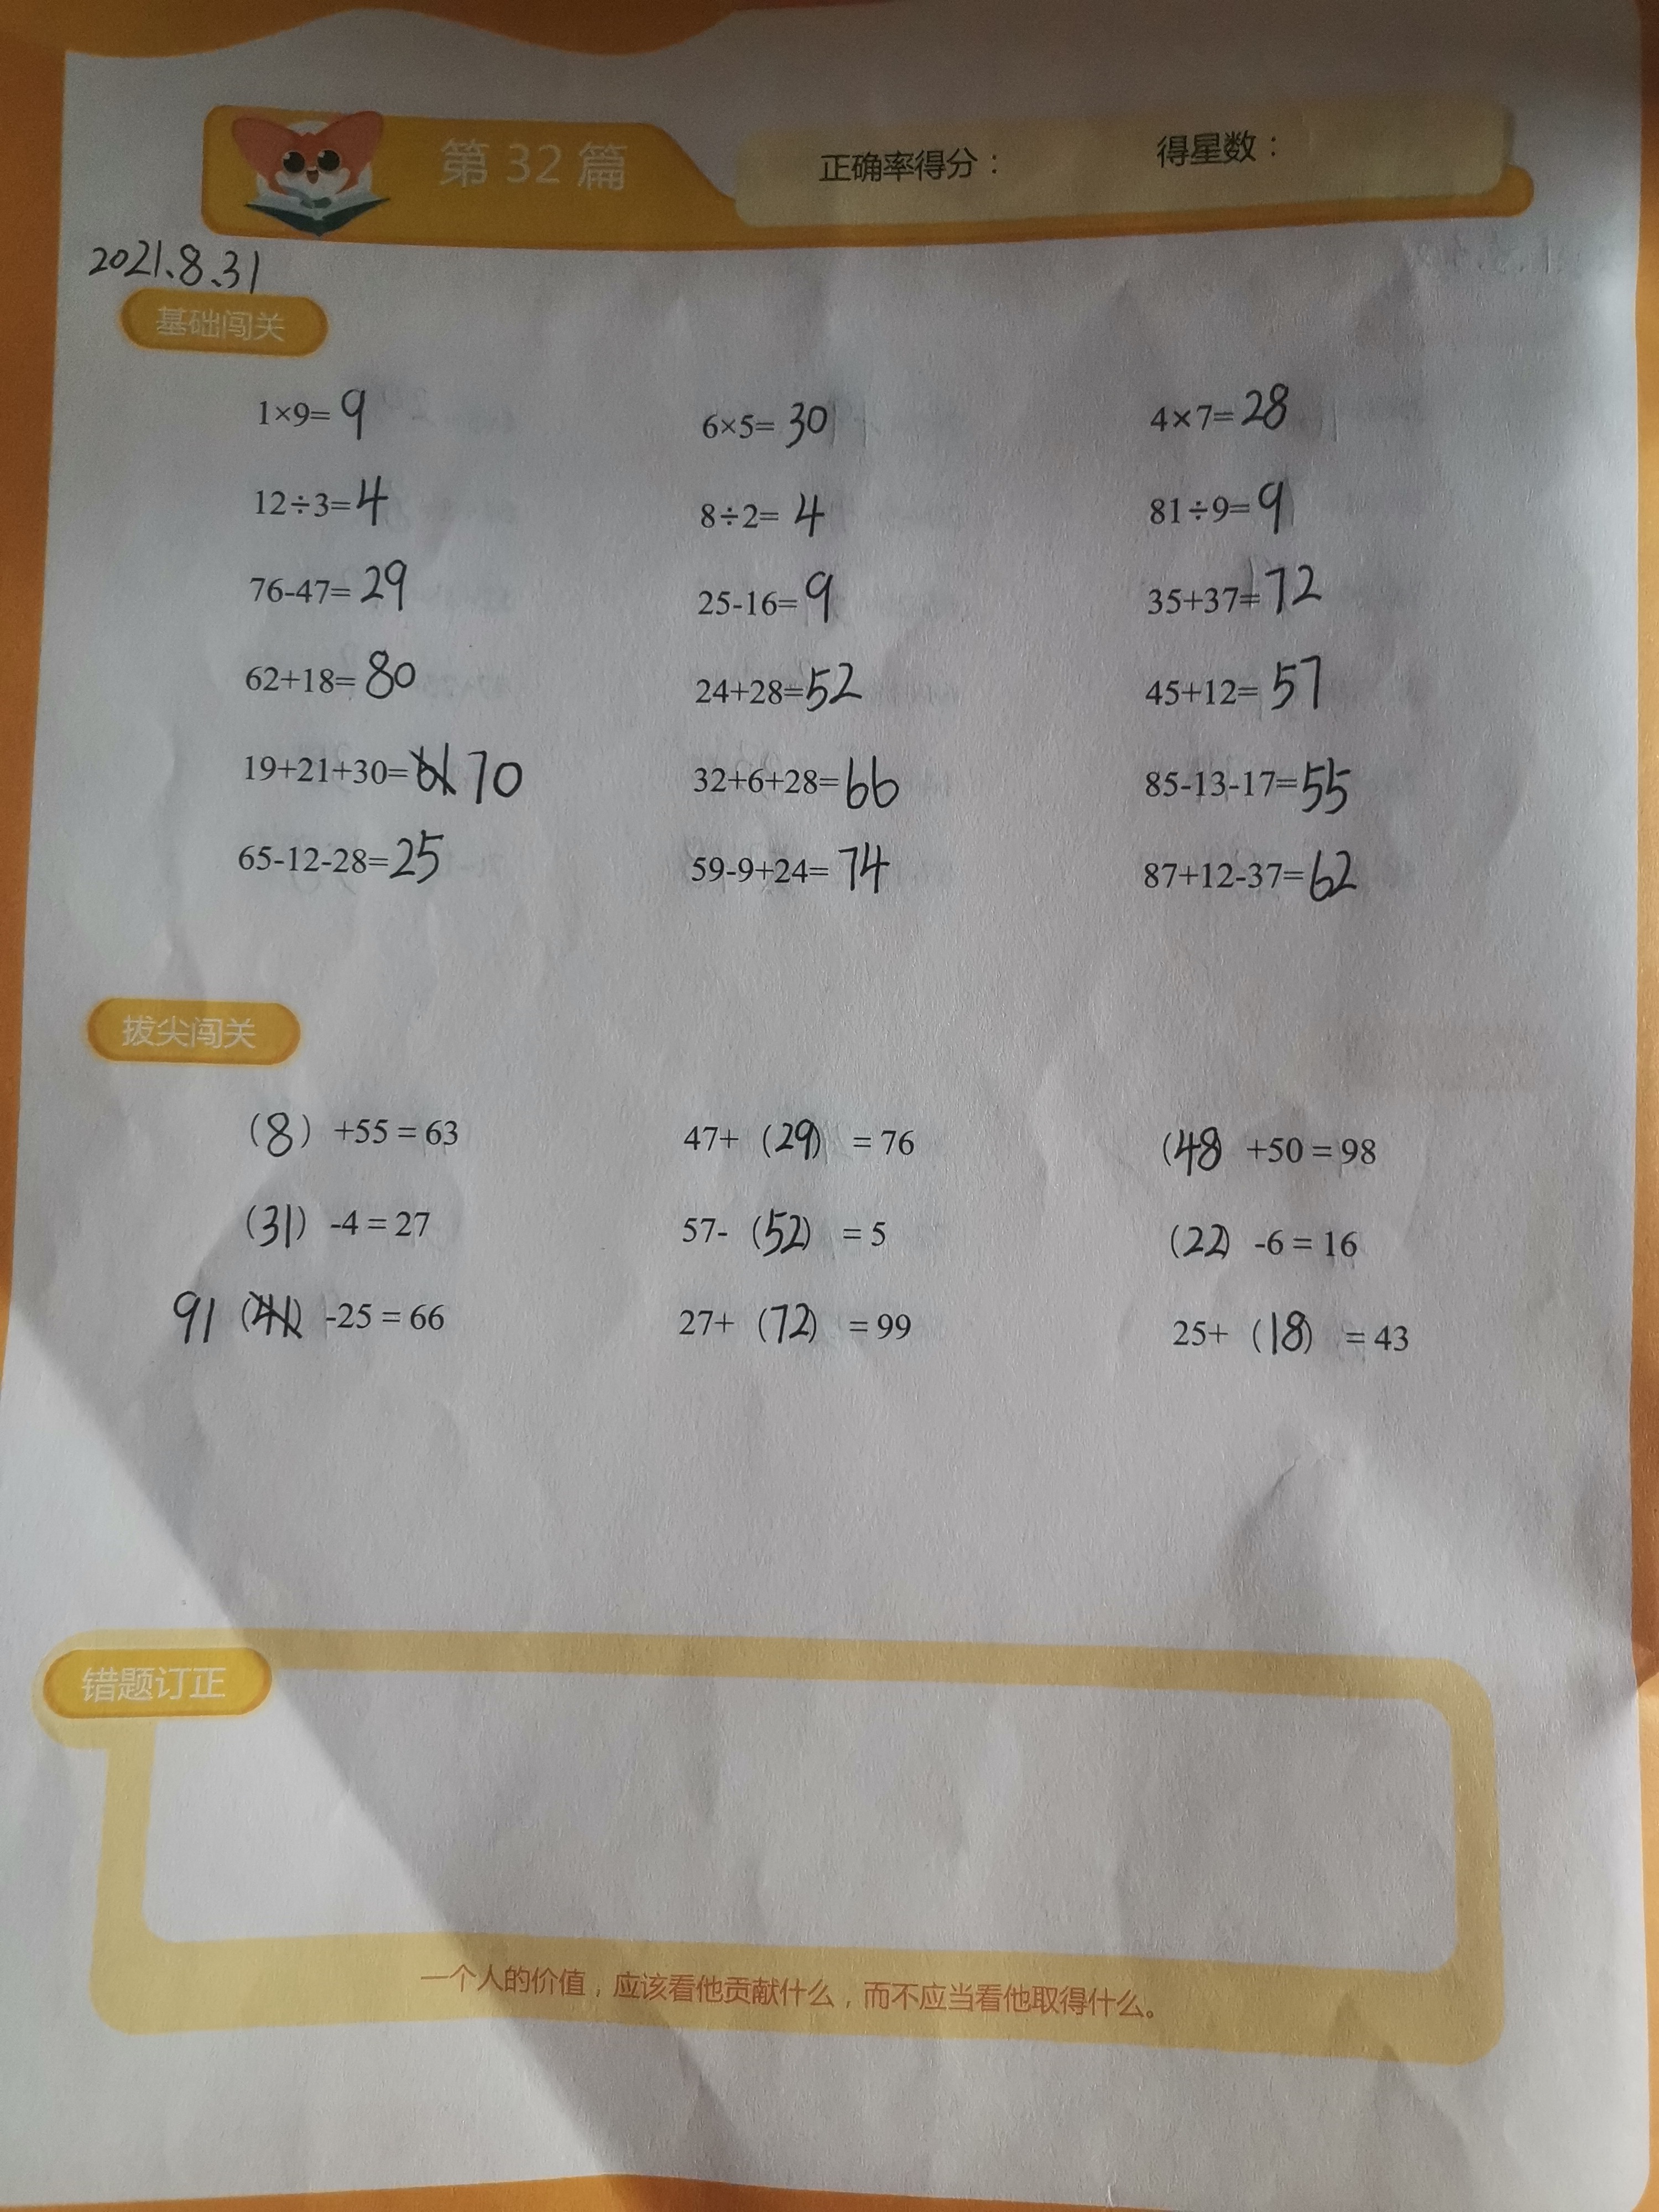 第 32 篇
正确率得分：
得星数：
2021.8.31
基础闯关
1×9=9 6×5=30 4×7=28
12÷3=4 8÷2=4 81÷9=9
76-47=29 25-16=9 35+37=72
62+18=80 24+28=52 45+12=57
19+21+30=61 70 32+6+28=66 85-13-17=55
65-12-28=25 59-9+24=74 87+12-37=62
拔尖闯关
（8）+55 = 63 47+（29）= 76 （48 +50 = 98
（31）-4 = 27 57-（52）= 5 （22）-6 = 16
91（41）-25 = 66 27+（72）= 99 25+（18）= 43
错题订正
一个人的价值，应该看他贡献什么，而不应当看他取得什么。